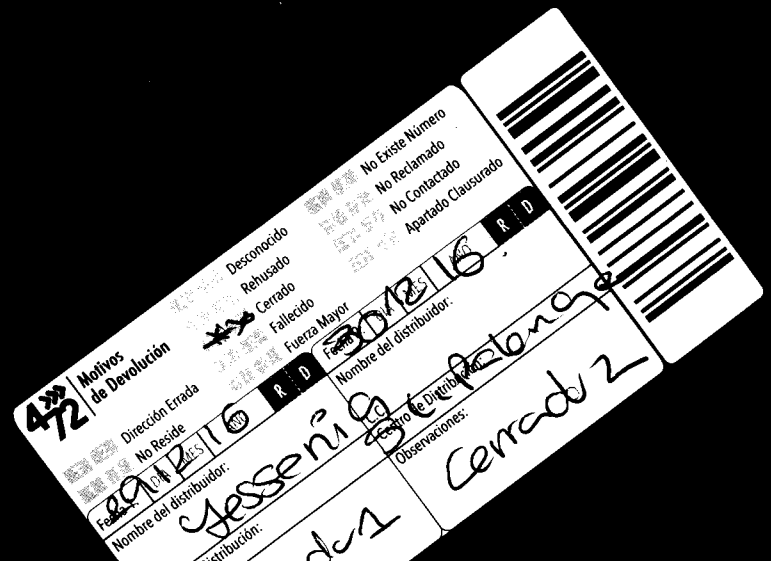 4>>>
72
Motivos
de Devolución
Dirección Errada
No Reside
Desconocido
Rehusado
Cerrado
Fallecido
Fuerza Mayor
No Existe Número
No Reclamado
No Contactado
Apartado Clausurado
Fecha 29 12 16 R D
Nombre del distribuidor:
Yessenia
Fecha 30 12 16 R D
Nombre del distribuidor:
Centro de Distribución:
Observaciones:
Cerrado 2